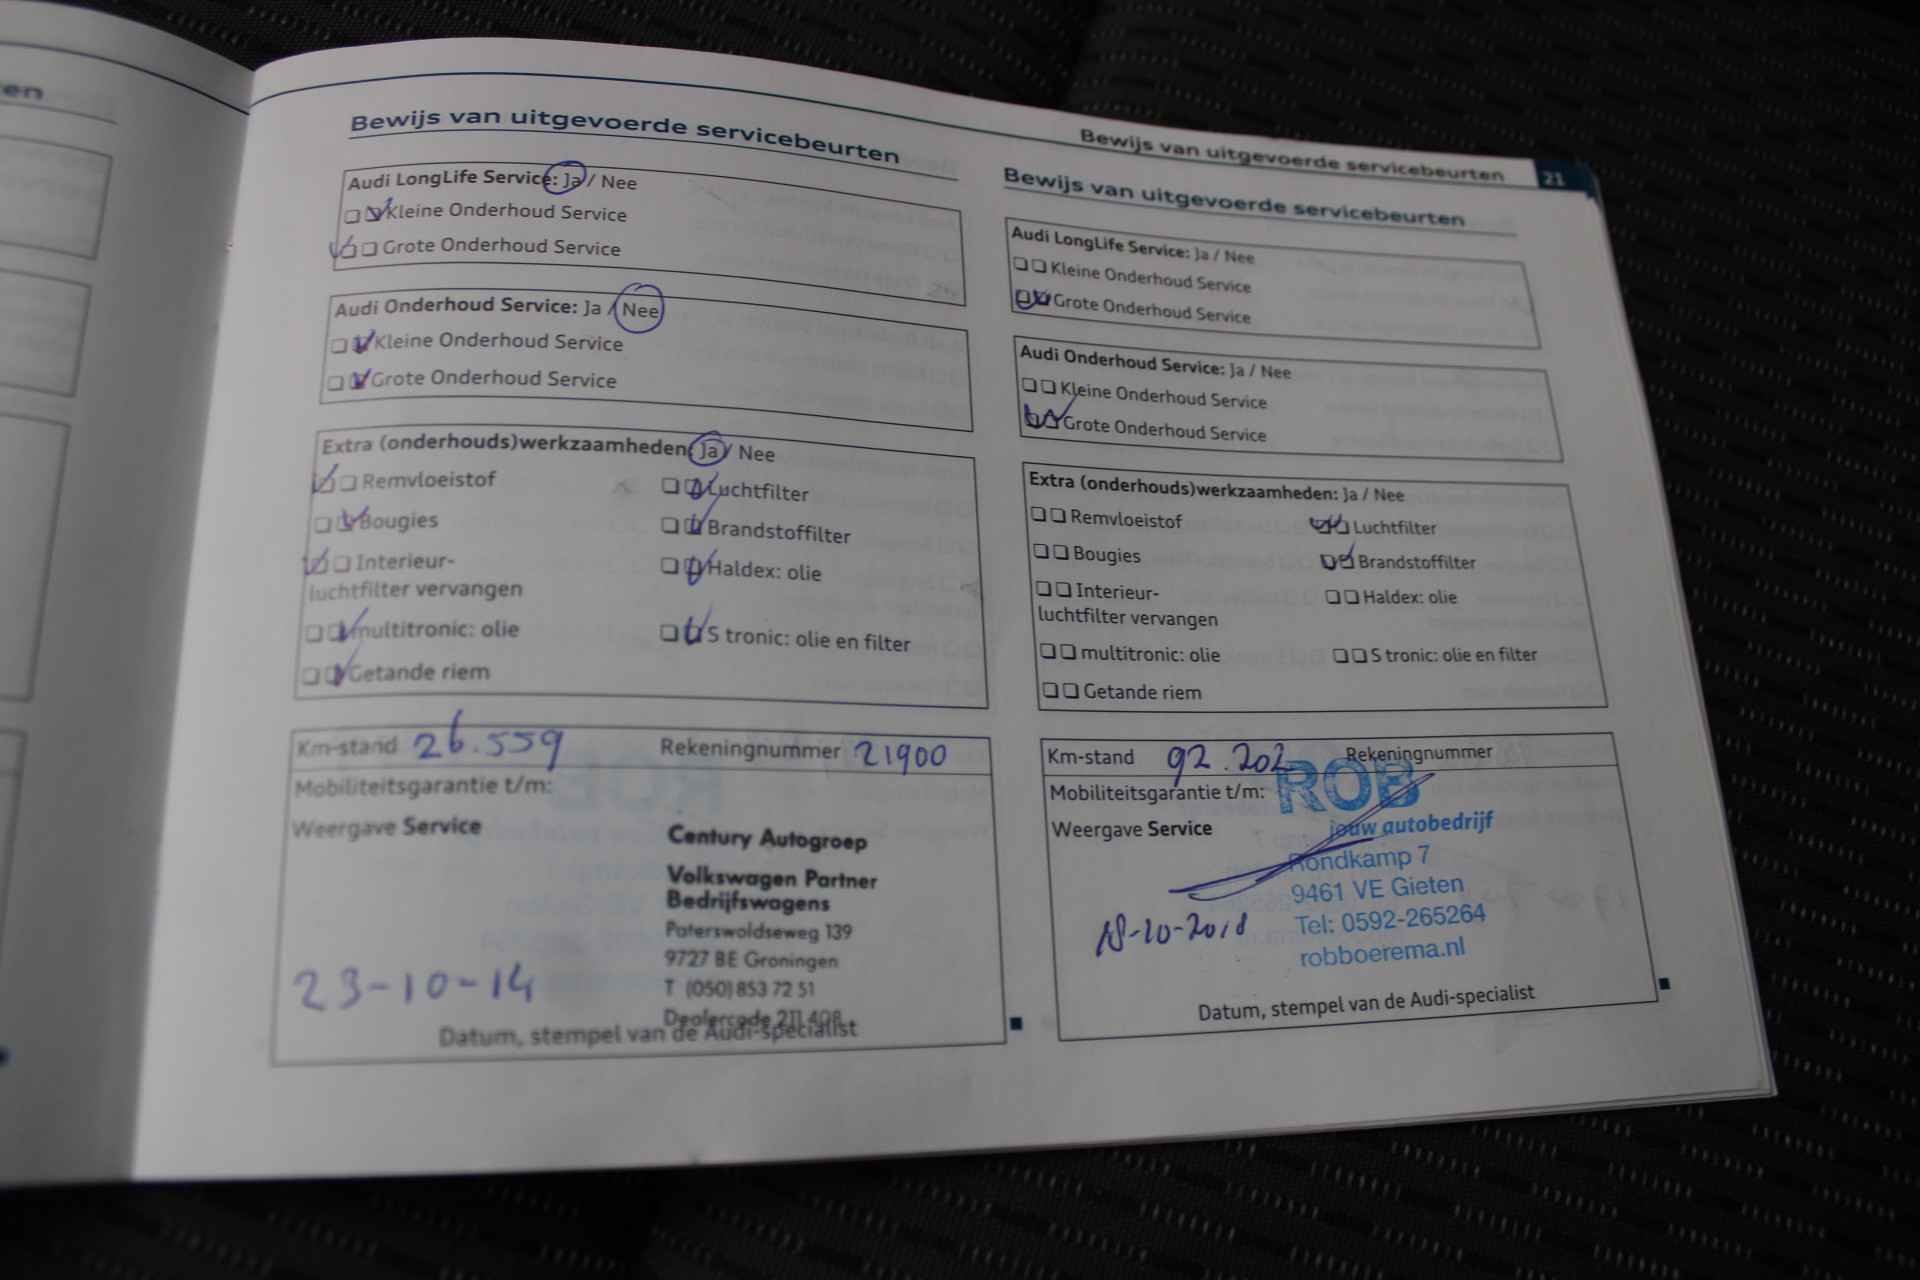 en
Bewijs van uitgevoerde servicebeurten 21
Bewijs van uitgevoerde servicebeurten
Audi LongLife Service: Ja / Nee
Kleine Onderhoud Service
Grote Onderhoud Service
Audi Onderhoud Service: Ja / Nee
Kleine Onderhoud Service
Grote Onderhoud Service
Extra (onderhouds)werkzaamheden: Ja / Nee
Remvloeistof
Luchtfilter
Bougies
Brandstoffilter
Interieur-
luchtfilter vervangen
Haldex: olie
multitronic: olie
S tronic: olie en filter
Getande riem
Km-stand 26.559 Rekeningnummer 21900
Mobiliteitsgarantie t/m:
Weergave Service
Century Autogroep
Volkswagen Partner
Bedrijfswagens
Paterswoldseweg 139
9727 BE Groningen
T (050) 853 72 51
Dealercode 211 408
23-10-14
Datum, stempel van de Audi-specialist
Bewijs van uitgevoerde servicebeurten
Audi LongLife Service: Ja / Nee
Kleine Onderhoud Service
Grote Onderhoud Service
Audi Onderhoud Service: Ja / Nee
Kleine Onderhoud Service
Grote Onderhoud Service
Extra (onderhouds)werkzaamheden: Ja / Nee
Remvloeistof
Luchtfilter
Bougies
Brandstoffilter
Interieur-
luchtfilter vervangen
Haldex: olie
multitronic: olie
S tronic: olie en filter
Getande riem
Km-stand 92.202 Rekeningnummer
Mobiliteitsgarantie t/m:
Weergave Service
ROB
jouw autobedrijf
Rondkamp 7
9461 VE Gieten
Tel: 0592-265264
robboerema.nl
18-10-2018
Datum, stempel van de Audi-specialist